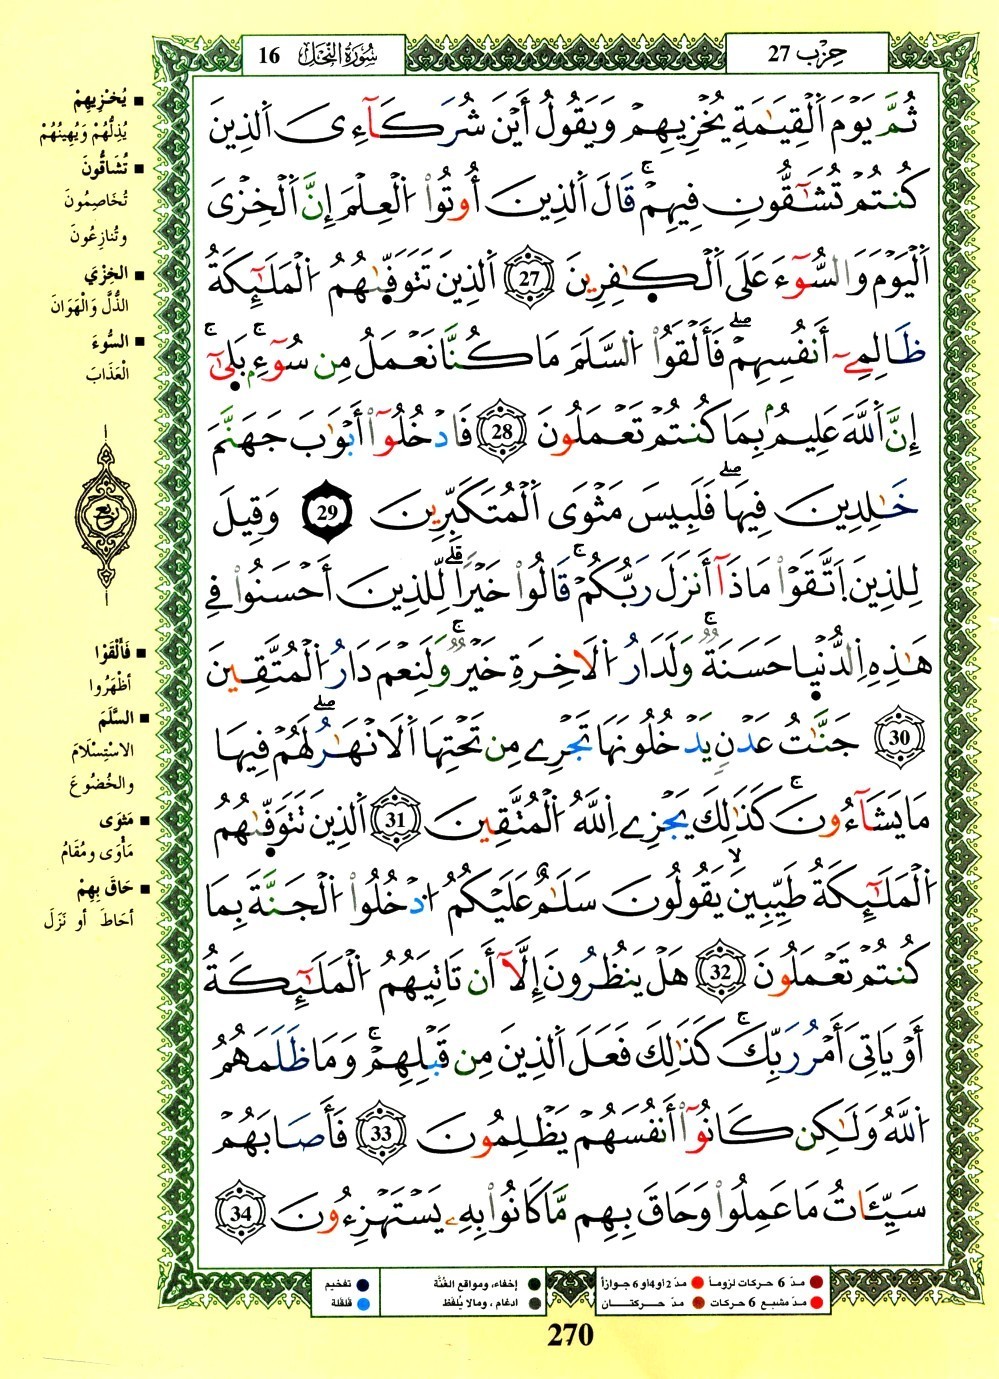 حزب 27
سورة النحل 16
ثُمَّ يَوْمَ اَ۬لْقِيَٰمَةِ يُخْزِيهِمْ وَيَقُولُ أَيْنَ شُرَكَآءِيَ اَ۬لذِينَ
كُنتُمْ تُشَٰٓقُّونِ فِيهِمْۖ قَالَ اَ۬لذِينَ أُوتُواْ اُ۬لْعِلْمَ إِنَّ اَ۬لْخِزْيَ
اَ۬لْيَوْمَ وَالسُّوٓءَ عَلَى اَ۬لْكٰ۪فِرِينَ 27 اَ۬لذِينَ تَتَوَفّ۪ىٰهُمُ اُ۬لْمَلَٰٓئِكَةُ
ظَالِمِےٓ أَنفُسِهِمْ فَأَلْقَوُاْ اُ۬لسَّلَمَ مَا كُنَّا نَعْمَلُ مِن سُوٓءِۢ بَل۪ىٰٓ
إِنَّ اَ۬للَّهَ عَلِيمُۢ بِمَا كُنتُمْ تَعْمَلُونَ 28 فَادْخُلُوٓاْ أَبْوَٰبَ جَهَنَّمَ
خَٰلِدِينَ فِيهَا فَلَبِيسَ مَثْوَى اَ۬لْمُتَكَبِّرِينَ 29 وَقِيلَ
لِلذِينَ اَ۪تَّقَوْاْ مَاذَآ أَنزَلَ رَبُّكُمْ قَالُواْ خَيْراٗ لِّلذِينَ أَحْسَنُواْ فِے
هَٰذِهِ اِ۬لدُّنْي۪ا حَسَنَةٞ وَلَدَارُ اُ۬لَاخِرَةِ خَيْرٞ وَلَنِعْمَ دَارُ اُ۬لْمُتَّقِينَ
30 جَنَّٰتُ عَدْنٖ يَدْخُلُونَهَا تَجْرِے مِن تَحْتِهَا اَ۬لَانْهَٰرُ لَهُمْ فِيهَا
مَا يَشَآءُونَ كَذَٰلِكَ يَجْزِے اِ۬للَّهُ اُ۬لْمُتَّقِينَ 31 اَ۬لذِينَ تَتَوَفّ۪ىٰهُمُ
اُ۬لْمَلَٰٓئِكَةُ طَيِّبِينَ يَقُولُونَ سَلَٰمٌ عَلَيْكُمُ اُ۟دْخُلُواْ اُ۬لْجَنَّةَ بِمَا
كُنتُمْ تَعْمَلُونَ 32 هَلْ يَنظُرُونَ إِلَّآ أَن تَاتِيَهُمُ اُ۬لْمَلَٰٓئِكَةُ
أَوْ يَاتِيَ أَمْرُ رَبِّكَ كَذَٰلِكَ فَعَلَ اَ۬لذِينَ مِن قَبْلِهِمْ وَمَا ظَلَمَهُمُ
اُ۬للَّهُ وَلَٰكِن كَانُوٓاْ أَنفُسَهُمْ يَظْلِمُونَ 33 فَأَصَابَهُمْ
سَيِّـَٔاتُ مَا عَمِلُواْ وَحَاقَ بِهِم مَّا كَانُواْ بِهِۦ يَسْتَهْزِءُونَ 34
■ يُخْزِيهِمْ
يُذِلُّهُمْ وَيُهِينُهُمْ
■ تُشَاقُّونَ
تُخَاصِمُونَ
وتُنازِعُونَ
■ الخِزْيَ
الذُّلَّ وَالْهَوَانَ
■ السُّوءَ
الْعَذَابَ
ربع
■ فَأَلْقَوْا
أظْهَرُوا
■ السَّلَمَ
الاسْتِسْلَامَ
والخُضُوعَ
■ مَثْوَى
مَأْوَى ومُقَامُ
■ حَاقَ بِهِمْ
أحَاطَ أو نَزَلَ
مدّ 6 حركات لزوماً ● مدّ 2 أو 4 أو 6 جوازاً
مدّ مشبع 6 حركات ● مدّ حركتان
إخفاء، ومواقع الغُنَّة ● تفخيم
ادغام، ومالا يُلفَظ ● قلقلة
270